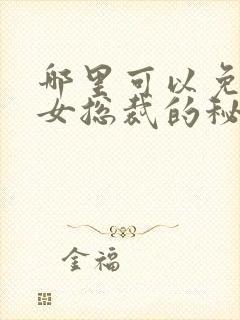 哪里可以免
女总裁的秘
金福